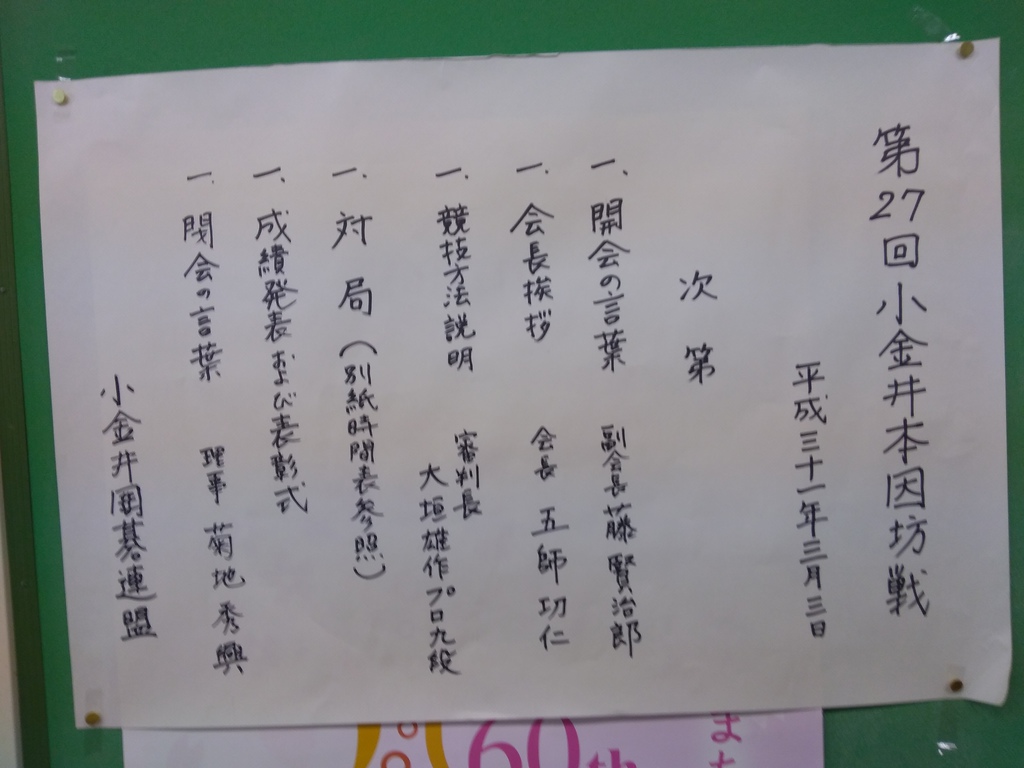 第27回小金井本因坊戦
平成三十一年三月三日
次第
一、開会の言葉 副会長 藤賢治郎
一、会長挨拶 会長 五師功仁
一、競技方法説明 審判長
大垣雄作プロ九段
一、対局(別紙時間表参照)
一、成績発表および表彰式
一、閉会の言葉 理事 菊地秀興
小金井囲碁連盟
60th